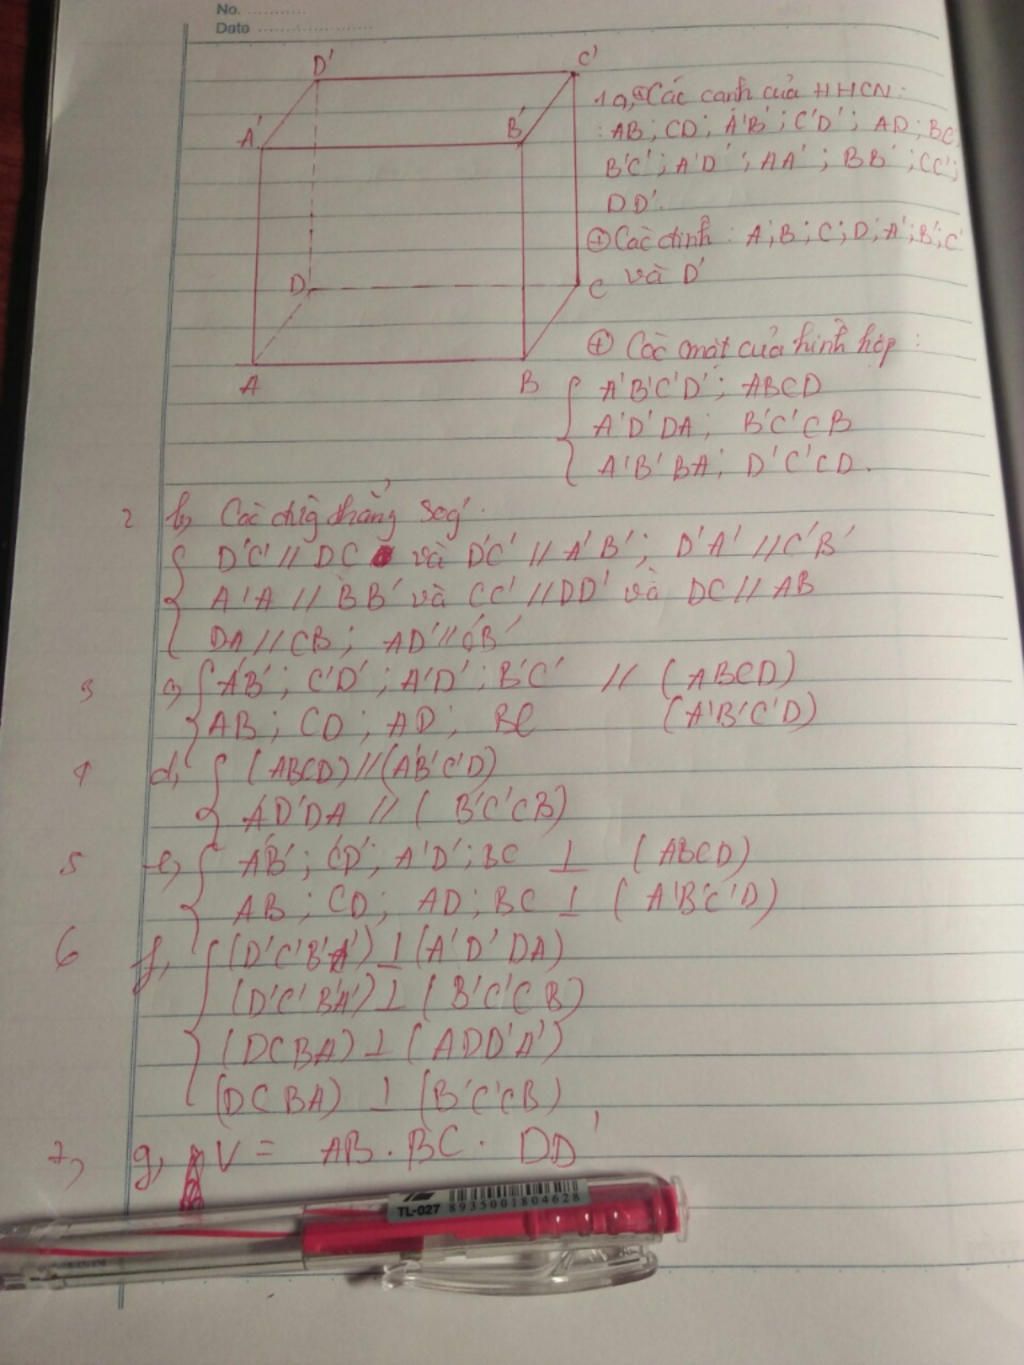 No. ............
Date ........................
D'
C'
A'
B'
D
C
A
B
1a, ⊕ Các cạnh của HHCN:
: AB; CD; A'B'; C'D'; AD; BC
B'C'; A'D'; AA'; BB'; CC';
DD'.
⊕ Các đỉnh: A; B; C; D; A'; B'; C'
và D'
⊕ Các mặt của hình hộp:
A'B'C'D'; ABCD
A'D'DA; B'C'CB
A'B'BA; D'C'CD.
2 b, Các đường thẳng sog'.
D'C' // DC và D'C' // A'B'; D'A' // C'B'
A'A // BB' và CC' // DD' và DC // AB
DA // CB; AD' // CB'
3 c, A'B'; C'D'; A'D'; B'C' // (ABCD)
AB; CD; AD; BC (A'B'C'D)
4 d, (ABCD) // (A'B'C'D)
A'D'DA // (B'C'CB)
5 e, A'B'; C'D'; A'D'; BC ⊥ (ABCD)
AB; CD; AD; BC ⊥ (A'B'C'D)
6 f, (D'C'B'A') ⊥ (A'D'DA)
(D'C'B'A') ⊥ (B'C'CB)
(DCBA) ⊥ (ADD'A')
(DCBA) ⊥ (B'C'CB)
7, g, V = AB . BC . DD'
TL-027 8935001804628